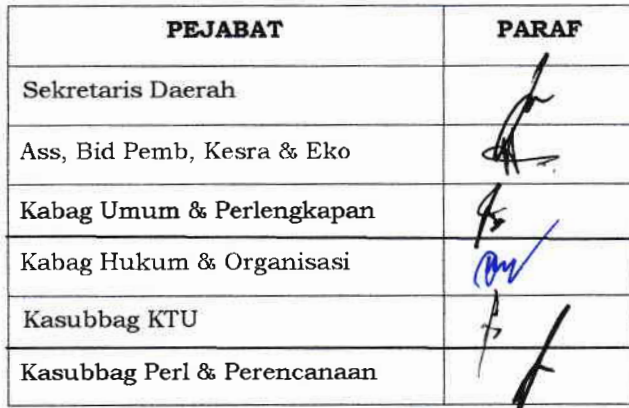 PEJABAT PARAF
Sekretaris Daerah
Ass, Bid Pemb, Kesra & Eko
Kabag Umum & Perlengkapan
Kabag Hukum & Organisasi
Kasubbag KTU
Kasubbag Perl & Perencanaan